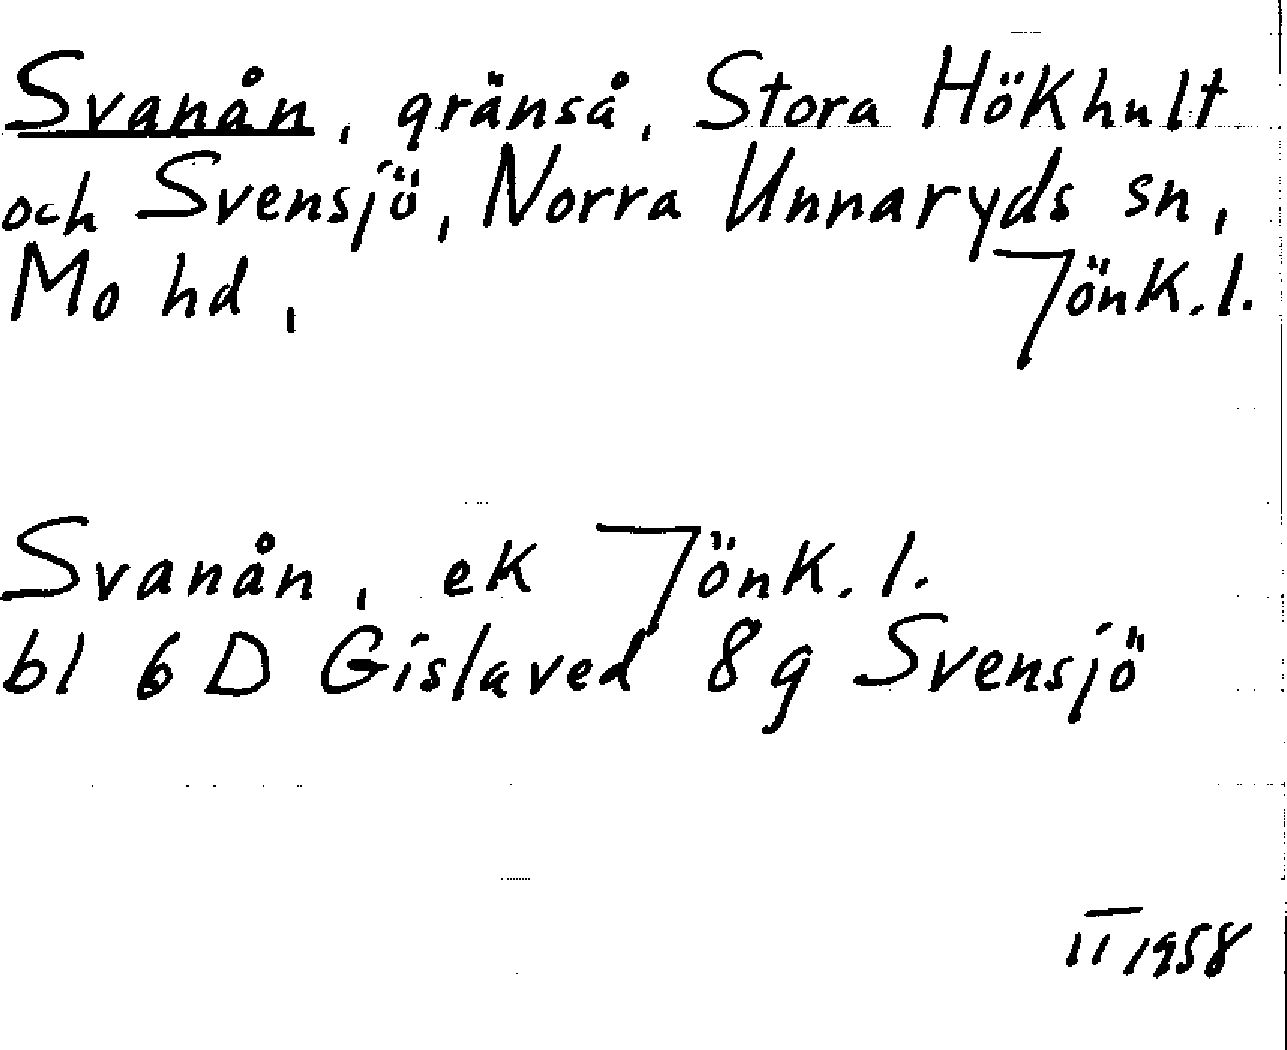 Svanån, gränså, Stora Hökhult
och Svensjö, Norra Unnaryds sn,
Mo hd, Jönk. l.
Svanån, ek Jönk. l.
bl 6 D Gislaved 8g Svensjö
II 1958